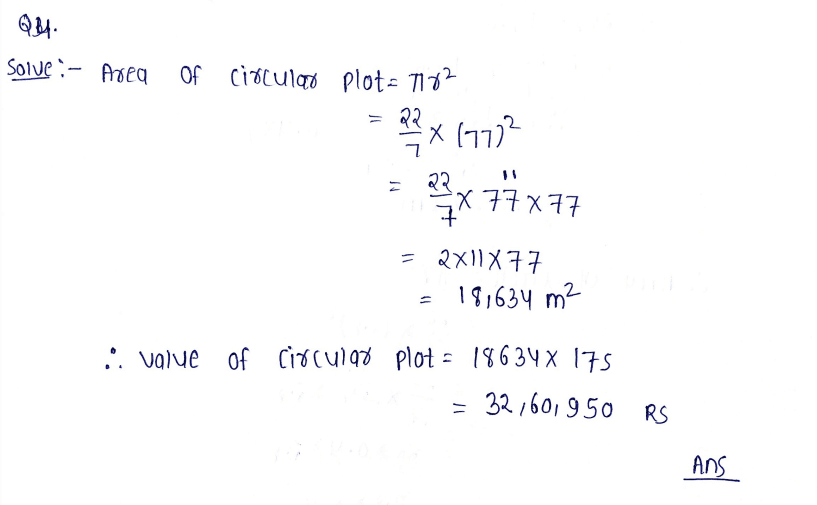 Q4.
Solve :- Area of circular plot = πr²
= 22/7 × (77)²
= 22/7 × 77 × 77 11
= 2×11×77
= 18,634 m²
∴ value of circular plot = 18634 × 175
= 32,60,950 RS
Ans